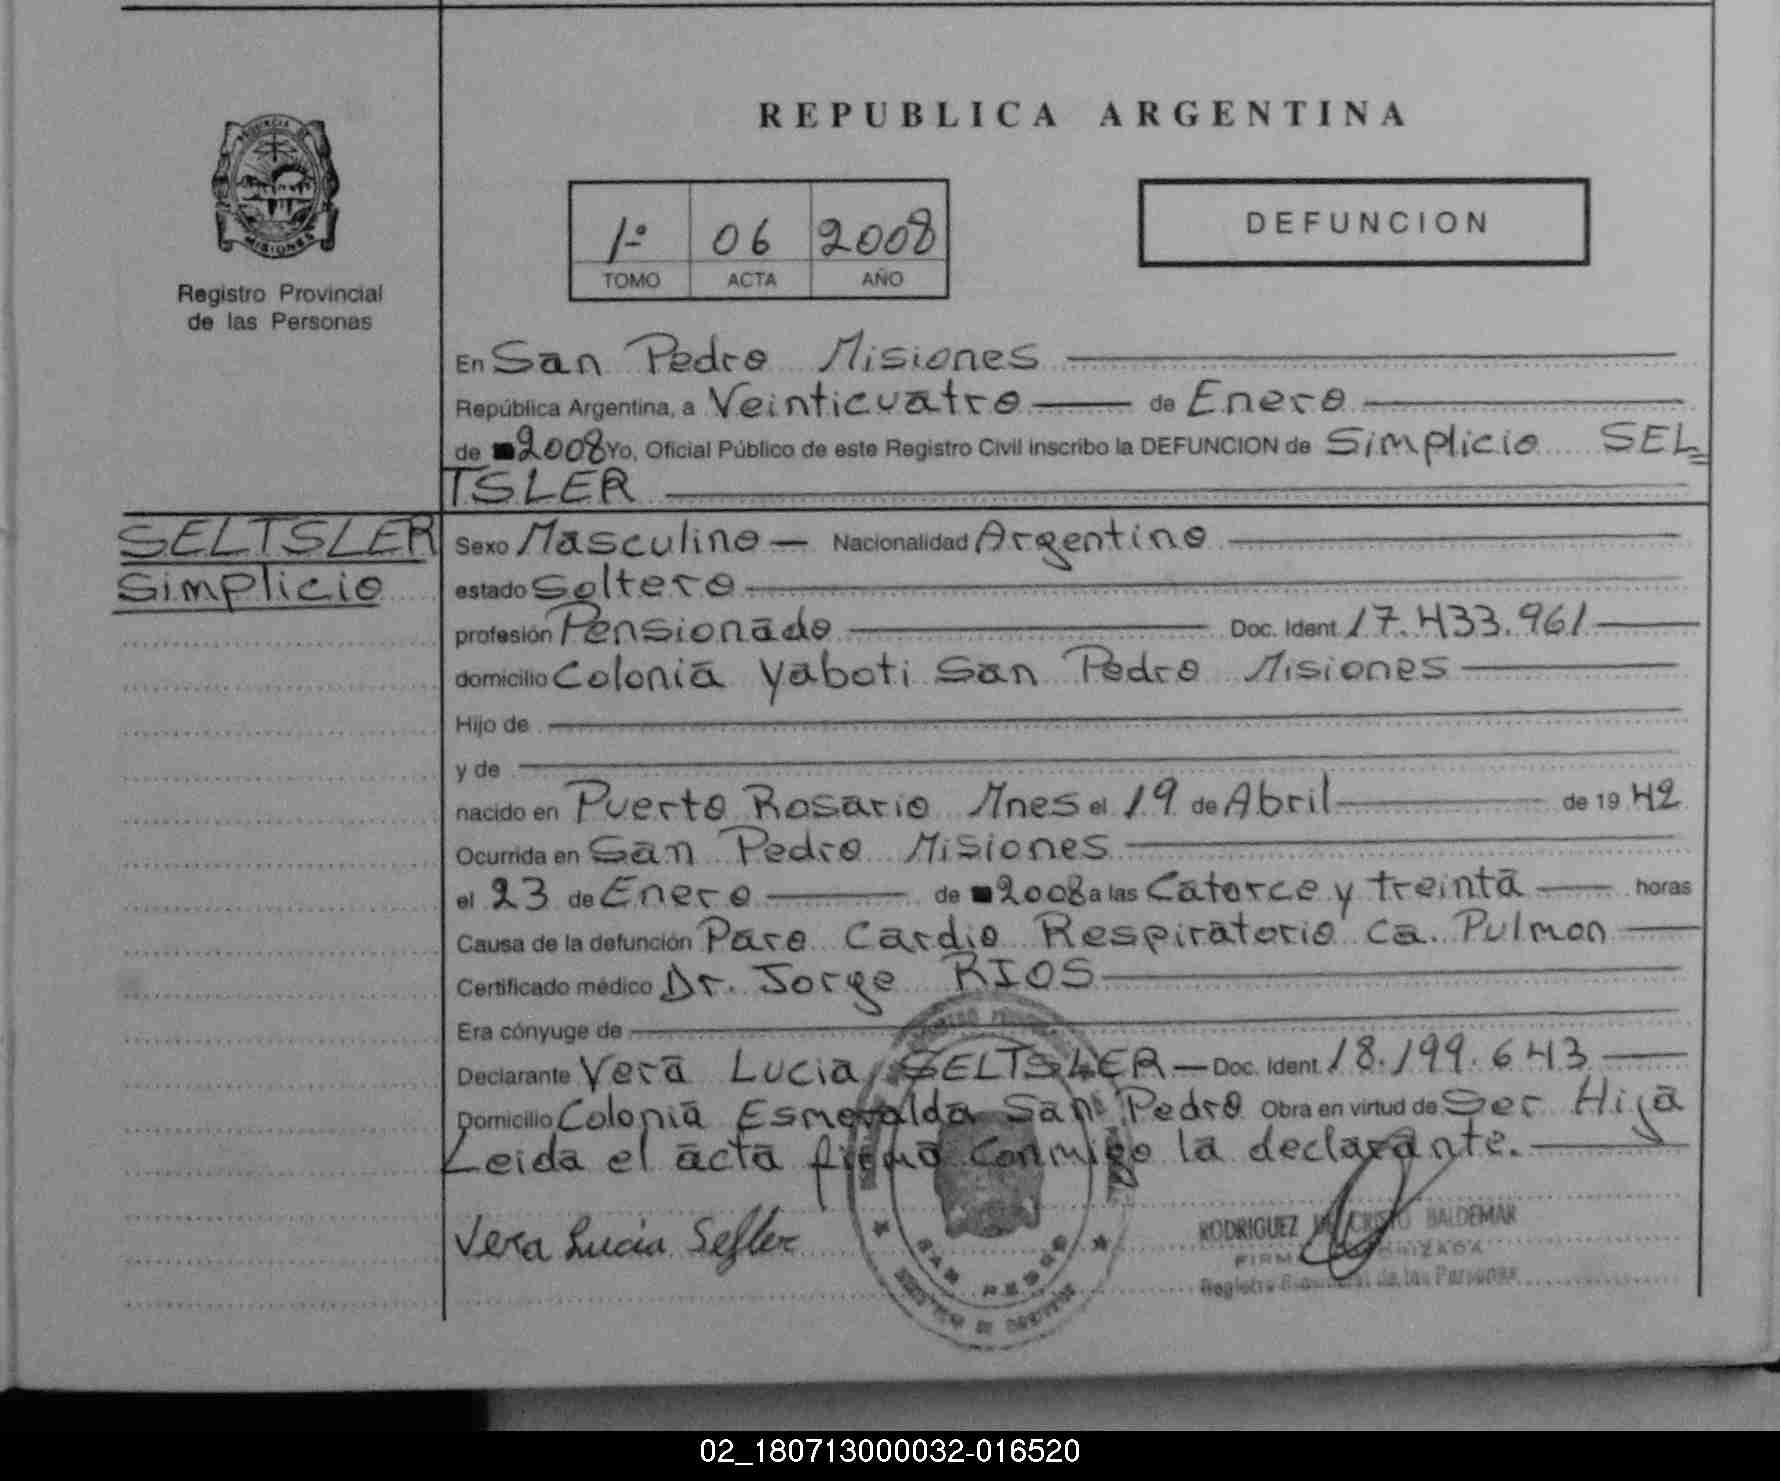 REPUBLICA ARGENTINA
PROVINCIA DE
MISIONES
Registro Provincial
de las Personas
1º 06 2008
TOMO ACTA AÑO
DEFUNCION
En San Pedro Misiones
República Argentina, a Veinticuatro de Enero
de 2008 Yo, Oficial Público de este Registro Civil inscribo la DEFUNCION de Simplicio SEL=
TSLER
SELTSLER
Simplicio
Sexo Masculino — Nacionalidad Argentino
estado Soltero
profesión Pensionado Doc. Ident. 17.433.961
domicilio Colonia Yaboti San Pedro Misiones
Hijo de
y de
nacido en Puerto Rosario Mnes el 19 de Abril de 19 42
Ocurrida en San Pedro Misiones
el 23 de Enero de 2008 a las Catorce y treinta horas
Causa de la defunción Paro Cardio Respiratorio Ca. Pulmon
Certificado médico Dr. Jorge RIOS
Era cónyuge de
Declarante Vera Lucia SELTSLER — Doc. Ident. 18.199.643
Domicilio Colonia Esmeralda San Pedro Obra en virtud de Ser Hija
Leida el acta firma conmigo la declarante.
Vera Lucia Seltler
RODRIGUEZ CRISTO BALDEMAR
Registro Provincial de las Personas
SAN PEDRO
02_180713000032-016520